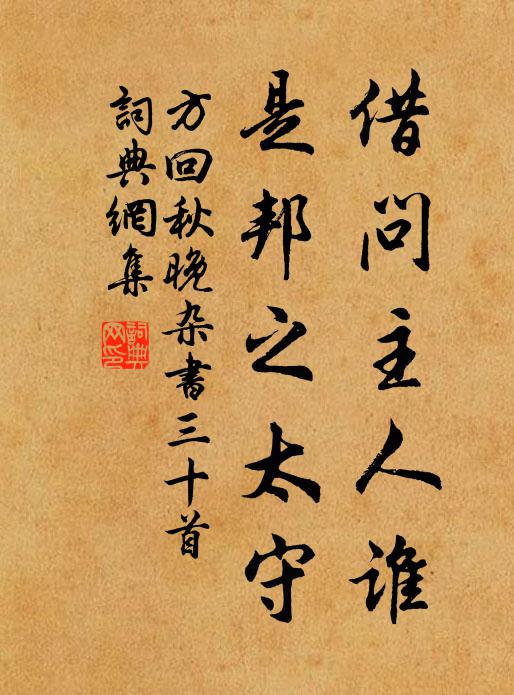 借问主人谁
是邦之太守
方回秋晚杂书三十首
詞典網集
詞典网印